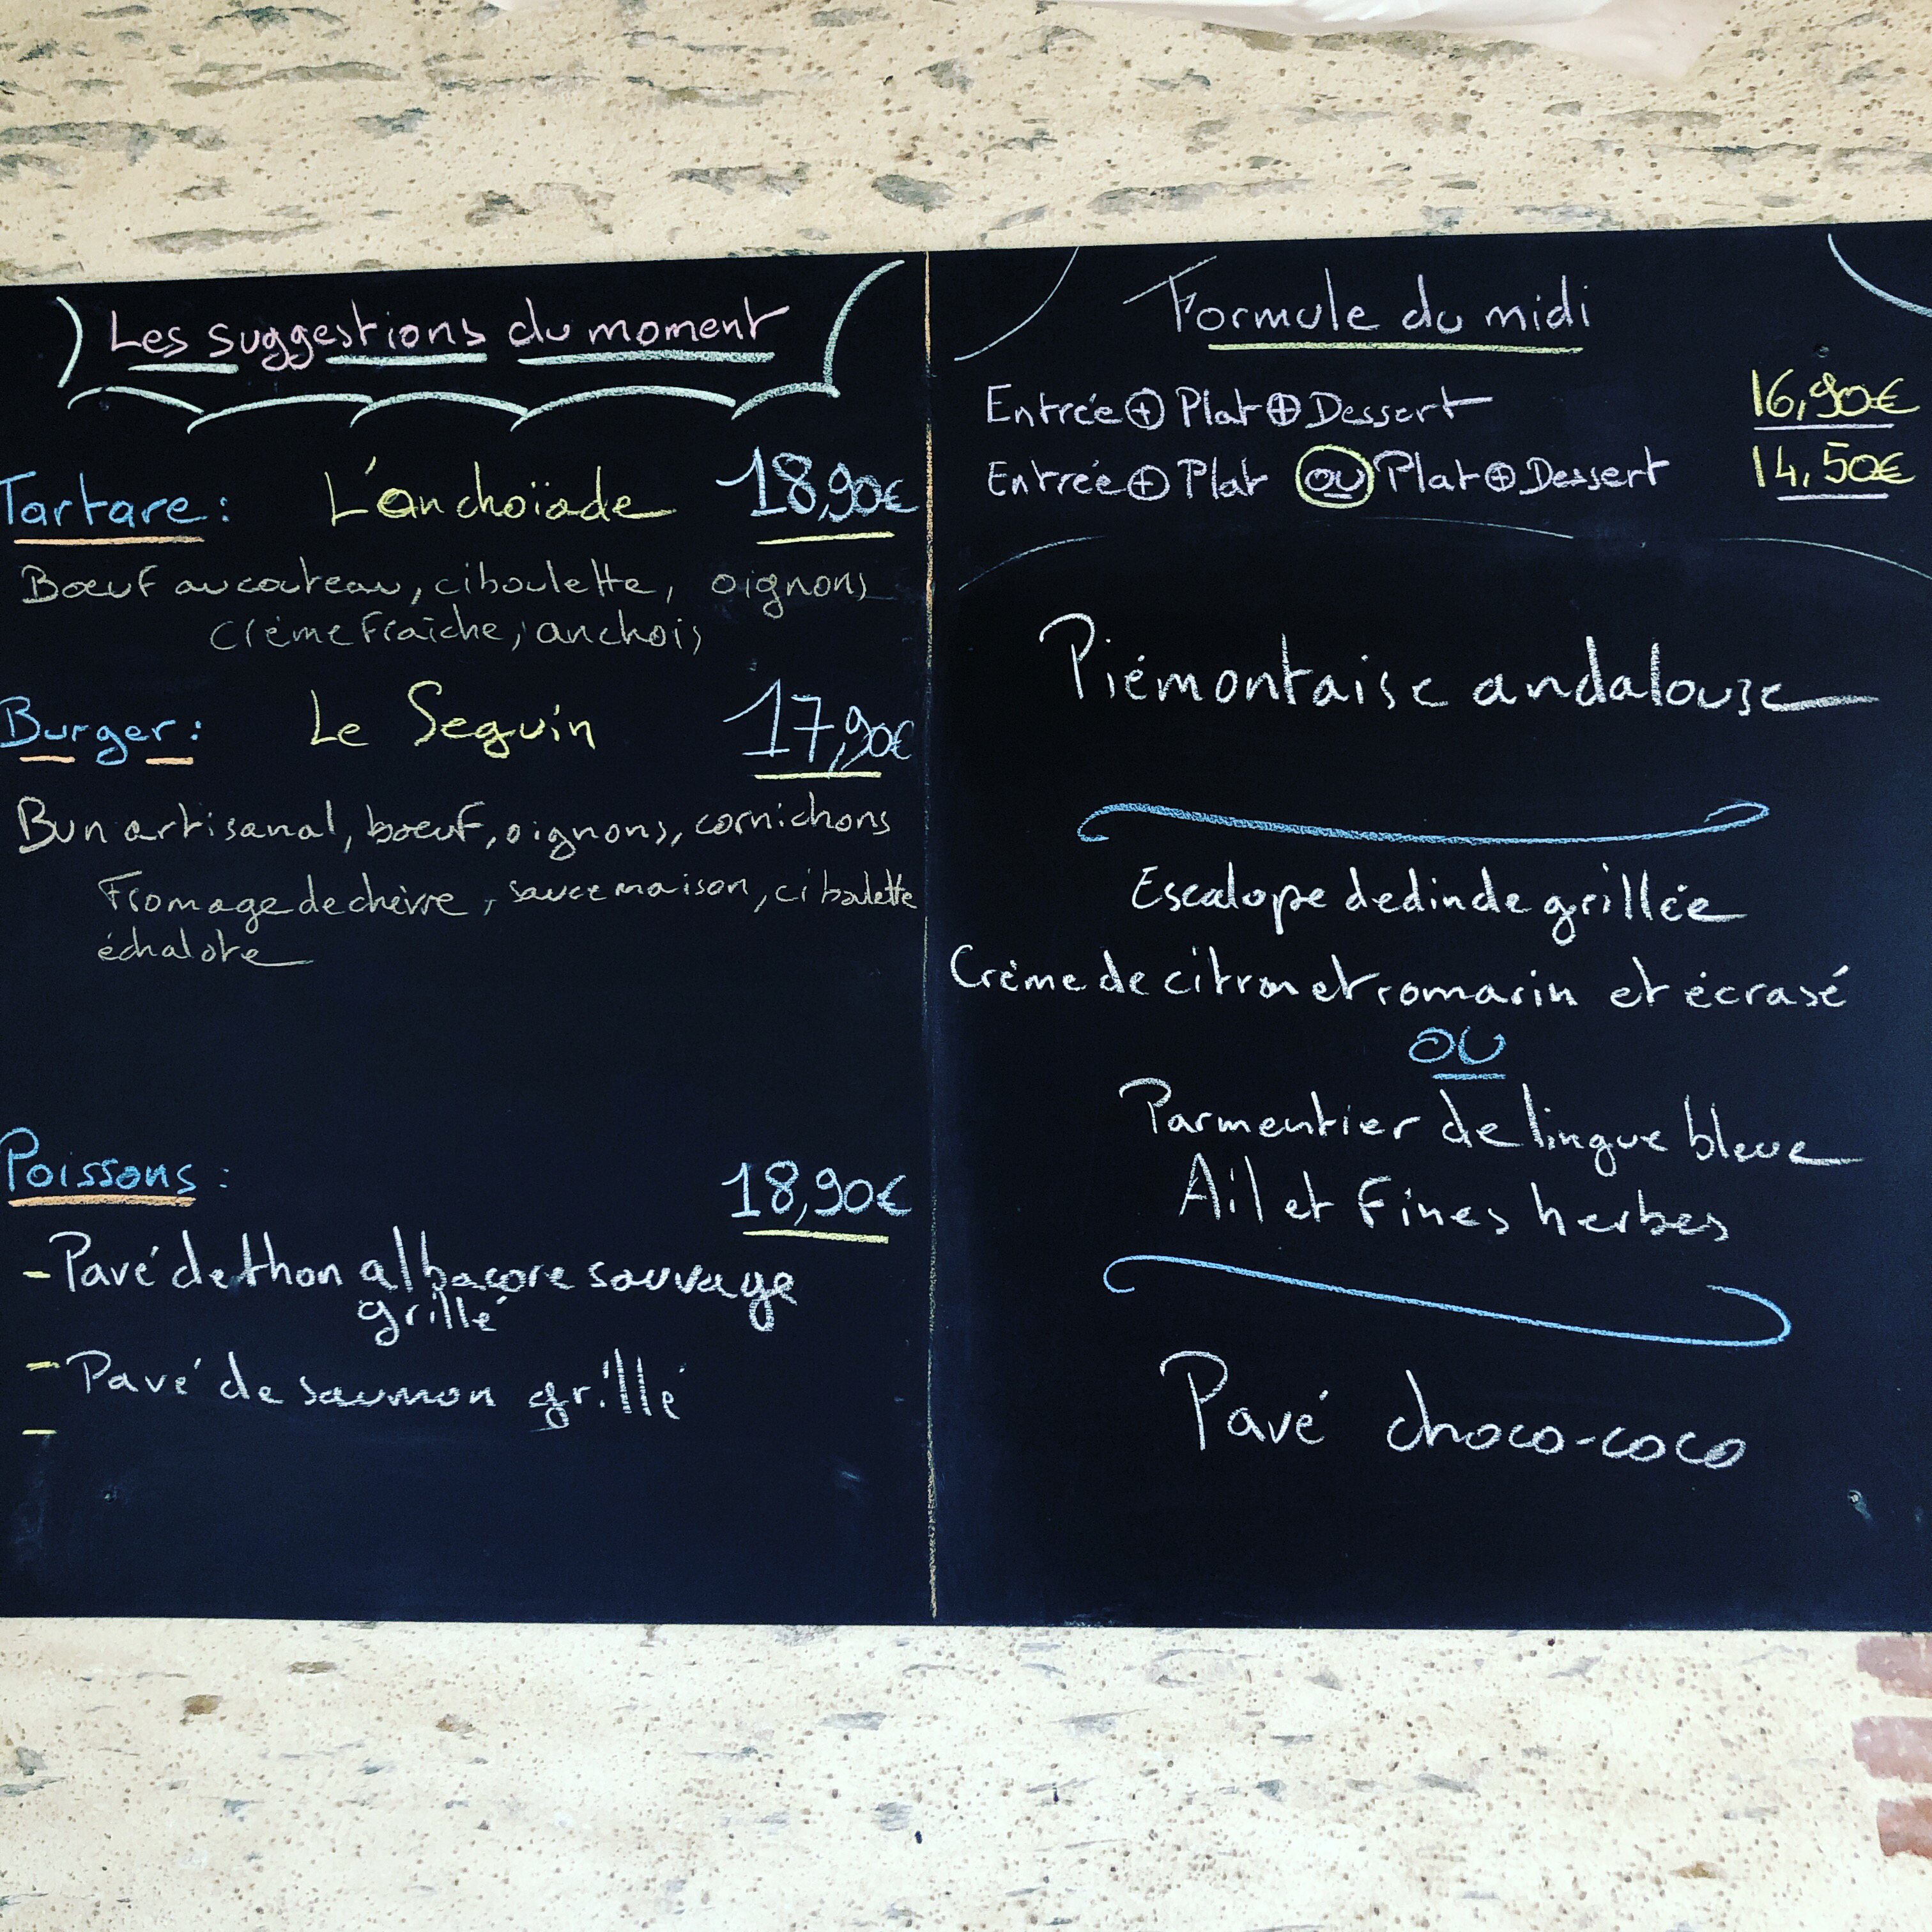 Les suggestions du moment
Tartare : L'anchoïade 18,90€
Bœuf au couteau, ciboulette, oignons
Crème fraîche, anchois
Burger : Le Seguin 17,90€
Bun artisanal, bœuf, oignons, cornichons
Fromage de chèvre, sauce maison, ciboulette
échalote
Poissons : 18,90€
- Pavé de thon albacore sauvage
grillé
- Pavé de saumon grillé
-
Formule du midi
Entrée + Plat + Dessert 16,90€
Entrée + Plat ou Plat + Dessert 14,50€
Piémontaise andalouse
Escalope de dinde grillée
Crème de citron et romarin et écrasé
ou
Parmentier de lingue bleue
Ail et Fines herbes
Pavé choco-coco